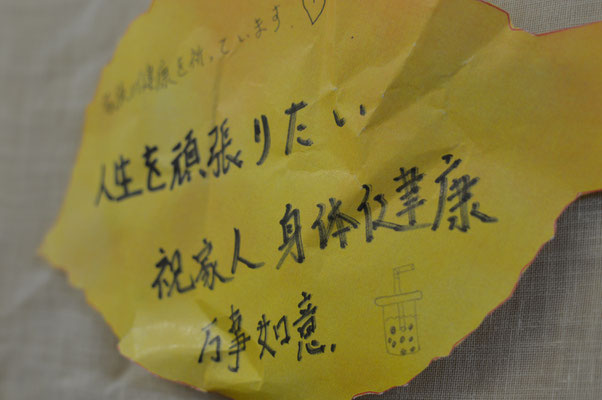 家族の健康を祈っています。
人生を頑張りたい
祝家人身体健康
万事如意.